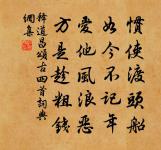 慣使渡頭船
如今不記年
愛他風浪惡
方是趁粗錢
釋道昌頌古四首詞典
網集